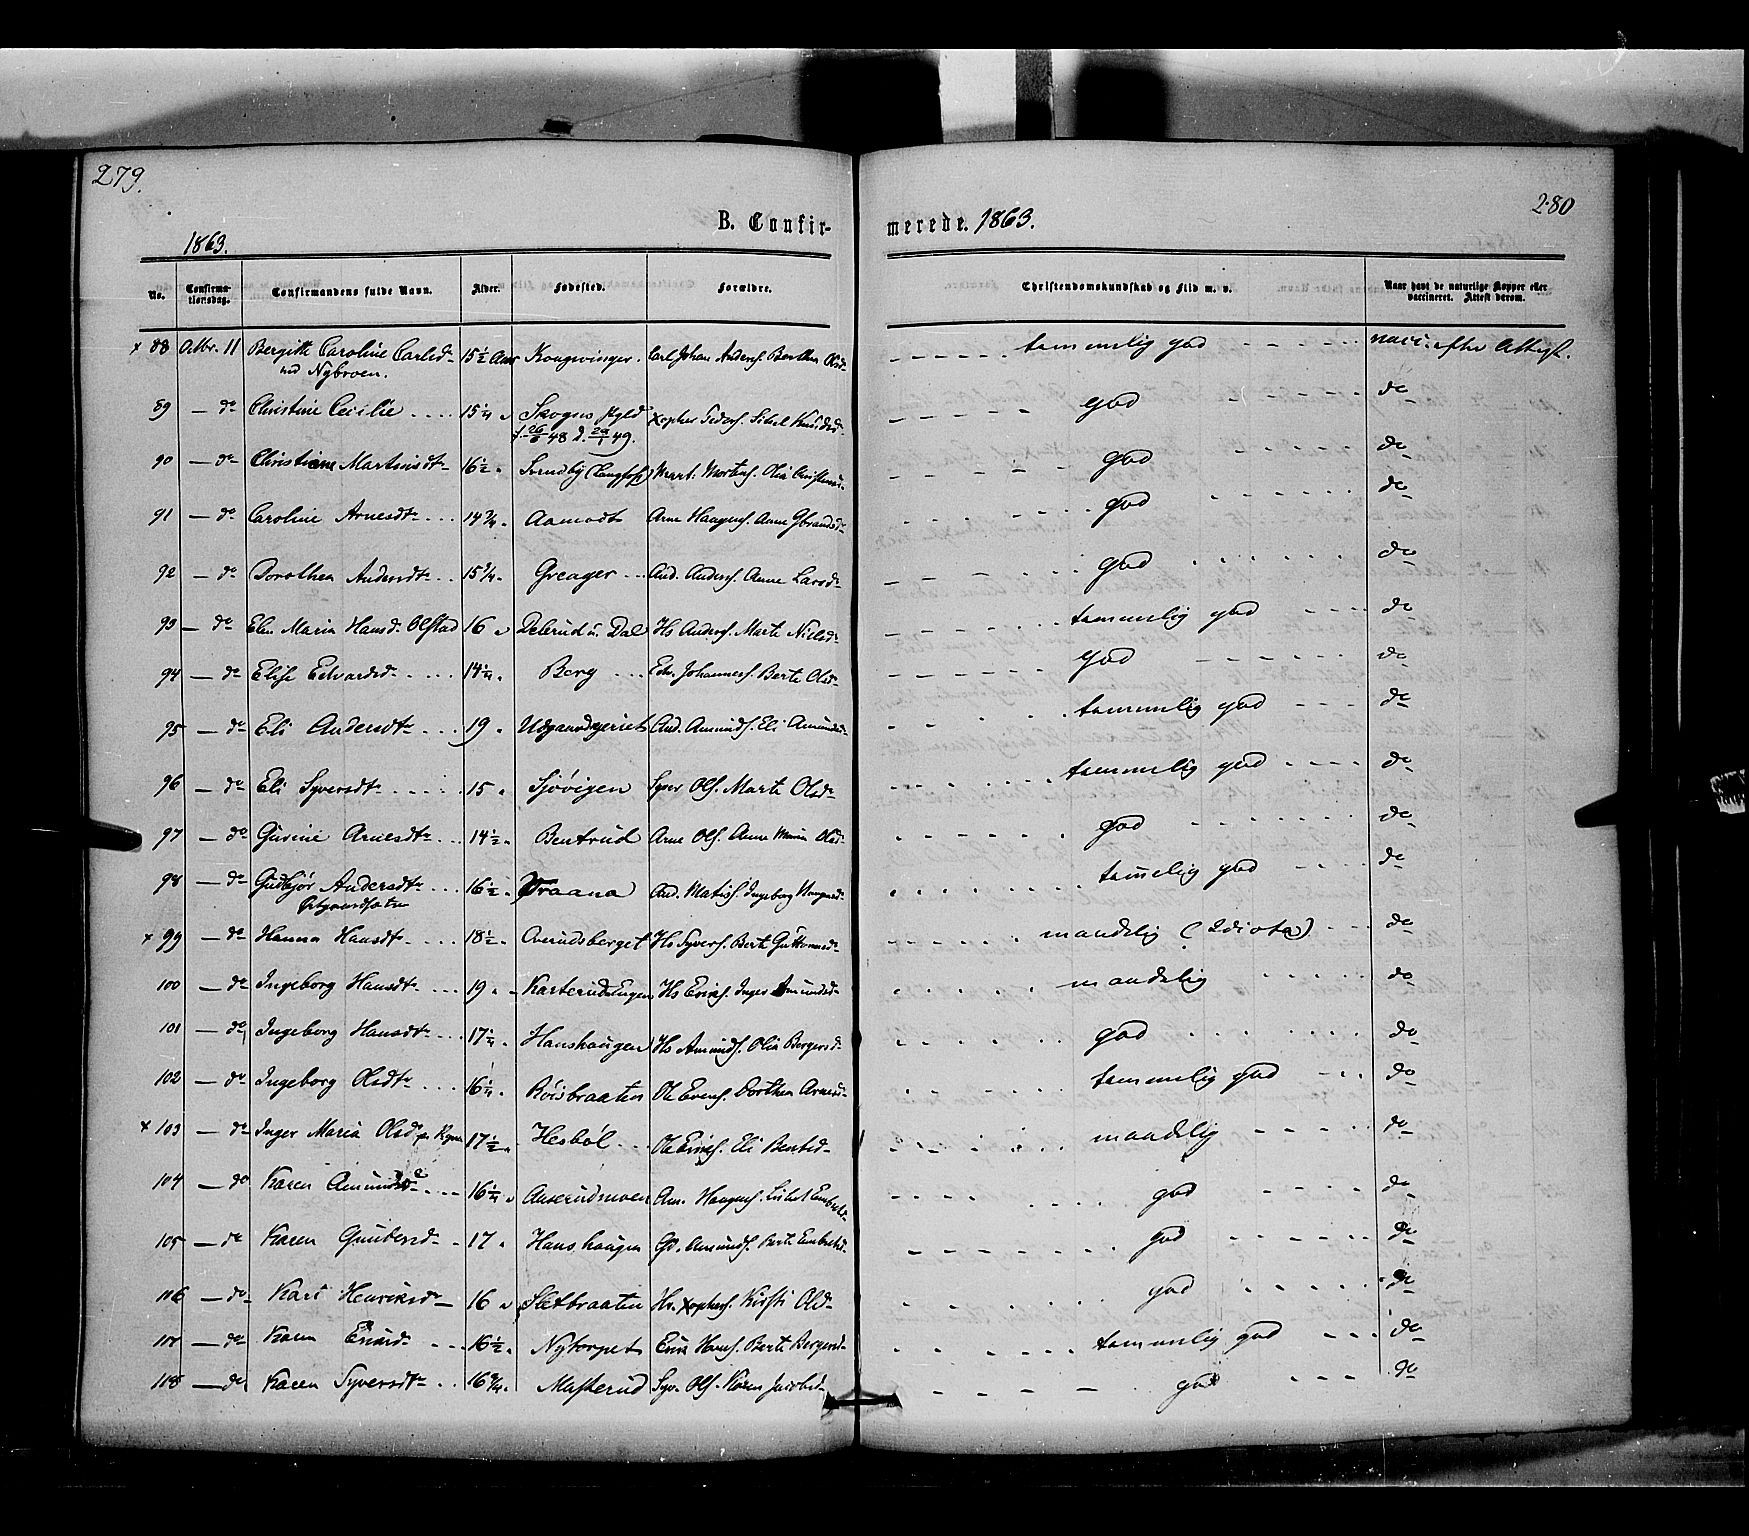 279.
280
B. Confir-
merede. 1863.
1863.
No.
Confirma-
tionsdag.
Confirmandens fulde Navn.
Alder.
Fødested.
Forældre.
Christendomskundskab og Flid m. v.
Naar havt de naturlige Kopper eller
vaccineret. Attest derom.
× 88 Octbr. 11 Bergitte Caroline Carlsdr 15½ Aar Kongsvinger. Carl Johan Andersf. Berthea Olsdr tammelig god vacc. efter Attest.
ved Nybroen.
89 — do Christine Cecilie 15¼ " Skogns Xopher Pedersf. Sibel Knudsd. god do
f. 26/6 48 d. 29/1 49.
90 — do Christiane Martinsdtr 16½ " Svendby Mart. Mortens. Olia god do
91 — do Caroline Arnesdtr 14¾ " Aamodt Arne Haagensf. Anne Gbrandsdr god do
92 — do Dorothea Andersdtr 15¼ " Greager And. Andersf. Anne Larsdr god do
93 — do Elen Maria Hansd. Olstad 16 " Debrud u. Dal Hs Andersf. Marte Nielsdr tammelig god do
94 — do Elise Edvardsdr 14¼ " Berg Edv. Johannesf. Berte Olsdr god do
95 — do Eli Andersdtr 19 " And. Amundsf. Eli Amundsdr tammelig god do
96 — do Eli Syversdtr 15 " Sjøvigen Syver Olsf. Marte Olsdr tammelig god do
97 — do Gurine Arnesdtr 14½ " Bentrud Arne Olsf. Anne Maria Olsd. god do
98 — do Gudbjør Andersdtr 16½ " Vraana And. Matisf. Ingeborg tammelig god do
× 99 — do Hanna Hansdtr 18½ " Overudsberget Hs Syversf. Berte Guttormsdr maadelig (Idiota) do
100 — do Ingeborg Hansdtr 19 " Karterudsengen Hs Ericsf. Inger Amundsd. maadelig do
101 — do Ingeborg Hansdtr 17¼ " Hanshaugen Hs Amundsf. Olia Bergersdr god do
102 — do Ingeborg Olsdtr 16¼ " Røisbraaten Ole Evensf. Dorthea Arnesdr tammelig god do
× 103 — do Inger Maria Olsdr 17½ " Hesbøl Ole Ericsf. Eli Bentsdr maadelig do
104 — do Karen Amundsdr 16¼ " Auserudmoen Am. Haagensf. Lisbet Embretsdr god do
105 — do Karen Gundersdr 17 " Hanshaugen Gd. Amundsf. Berte Embretsd. god do
106 — do Kari Henriksdr 16 " Sletbraaten Hr. Xophersf. Kirsti Olsdr god do
107 — do Karen Ericsdr 16½ " Nytorpet Eric Hansf. Berte Bergersdr tammelig god do
108 — do Karen Syversdtr 16¾ " Masterud Syv. Olsf. Karen Jacobsdr god do